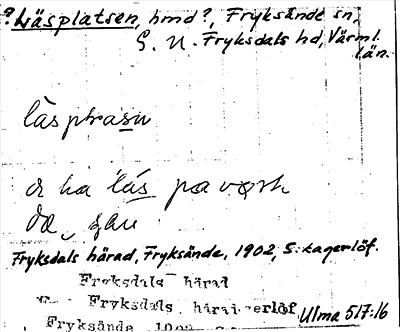 ?Läsplatsen, hmd?, Fryksände sn,
G. N. Fryksdals hd, Värml.
län.
läsplrasn
a ha läs pa
Fryksdals härad, Fryksände, 1902, S. Lagerlöf.
Fryksdals härad
Fryksdals härad erlöf
Fryksände 1902
Ulma 517:16